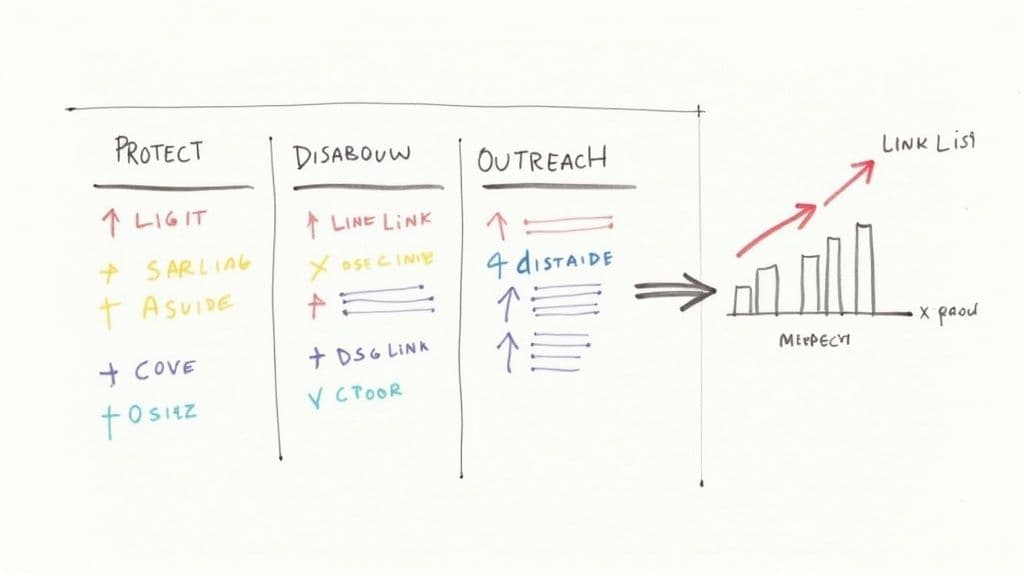 PROTECT
↑ LIGIT
→ SARLIAG
+ ASUIDE
+ COVE
+ OSITZ
DISABOUW
↑ LINE LINK
X OSECINIE
↑
+ DSG LINK
V CTOOR
OUTREACH
↑
4 dISTAIDE
↑
↑
LINK LIST
X